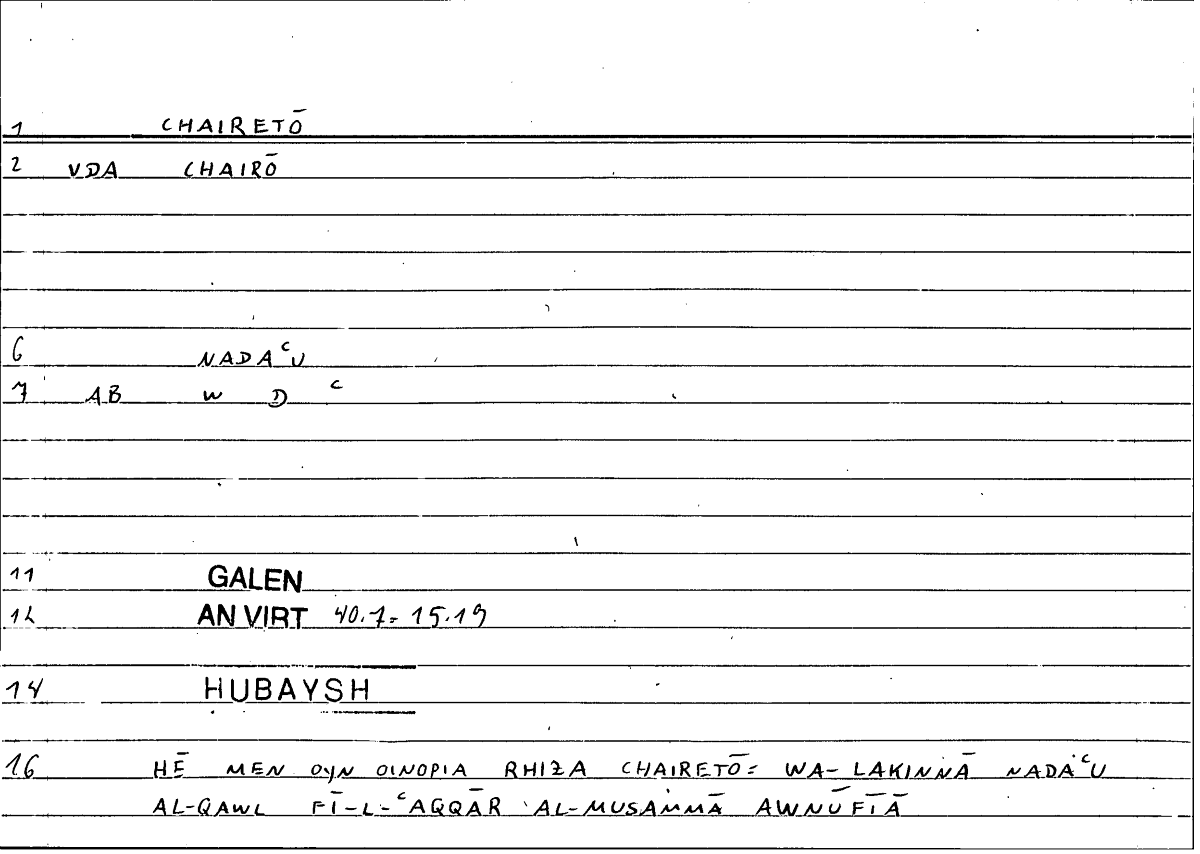 1 CHAIRETŌ
2 VDA CHAIRŌ
6 NADAᶜU
7 AB W D ᶜ
11 GALEN
12 AN VIRT 40.7 = 15.19
14 HUBAYSH
16 HĒ MEN OYN OINOPIA RHIZA CHAIRETŌ = WA-LAKINNĀ NADAᶜU
AL-QAWL FĪ-L-ᶜAQQĀR AL-MUSAMMĀ AWNŪFĪĀ